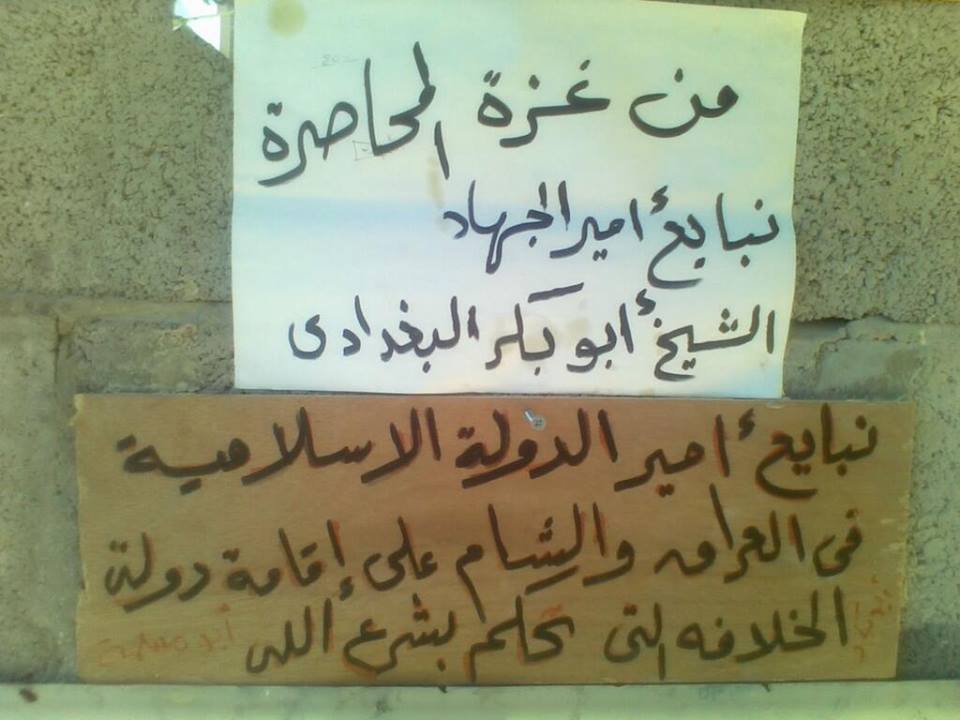 من غزة المحاصرة
نبايع أمير الجهاد
الشيخ أبو بكر البغدادى
نبايع أمير الدولة الاسلامية
فى العراق والشام على إقامة دولة
الخلافه التى تحكم بشرع الله